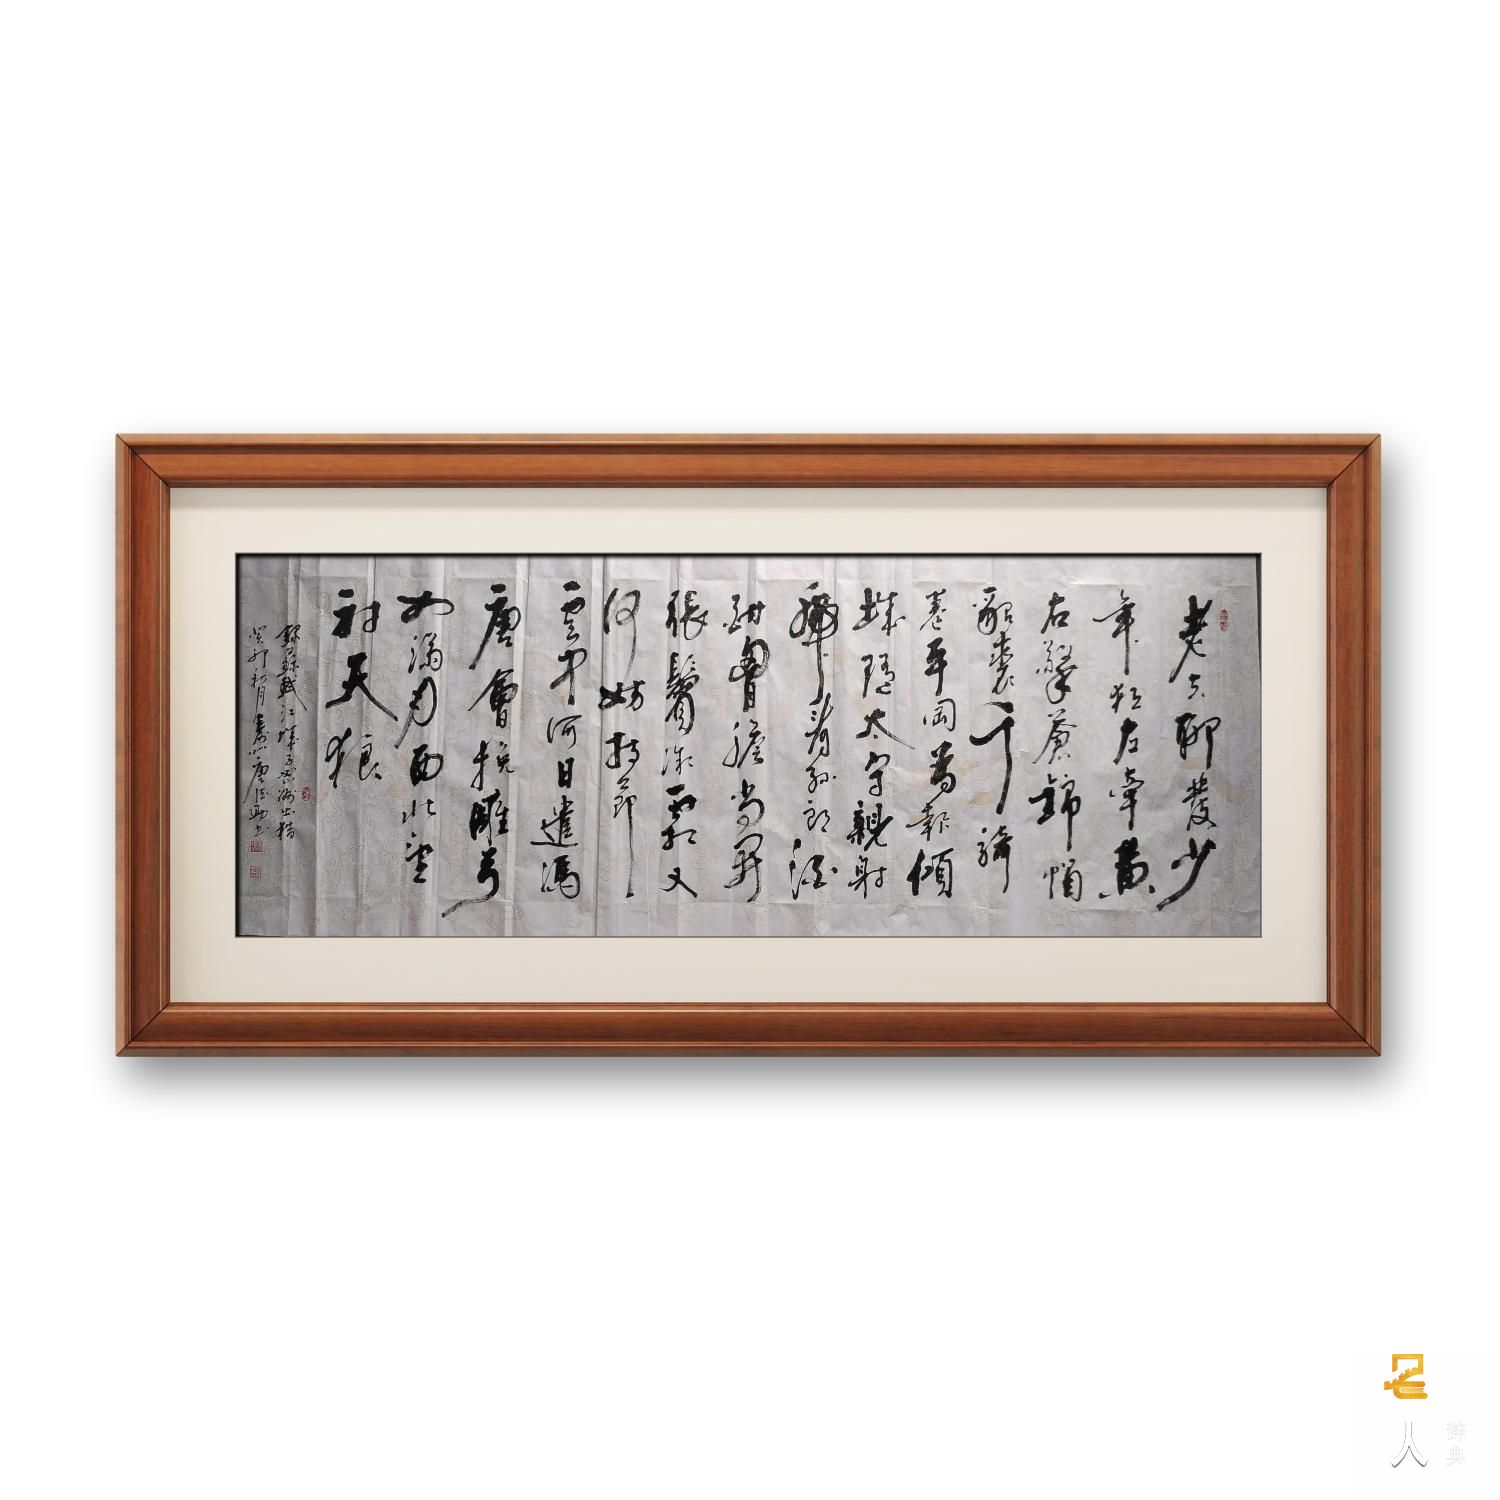 老夫聊發少
年狂左牽黄
右擎蒼錦帽
貂裘千騎
卷平岡為報傾
城隨太守親射
虎看孫郎酒
酣胸膽尚開
張鬢微霜又
何妨持節
雲中何日遣馮
唐會挽雕弓
如滿月西北望
射天狼
錄蘇軾江城子密州出猎
癸卯秋月
人
辞典